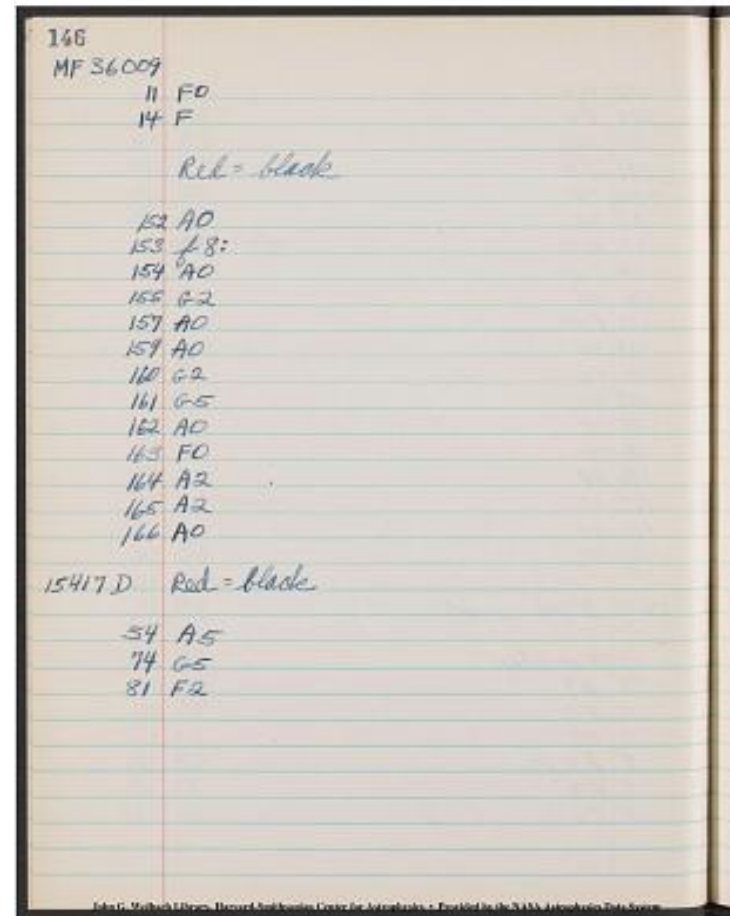 146
MF 36009
11 F0
14 F
Red = black
152 A0
153 f8:
154 A0
155 G2
157 A0
159 A0
160 G2
161 G5
162 A0
163 F0
164 A2
165 A2
166 A0
15417 D Red = black
54 A5
74 G5
81 F2
John G. Wolbach Library, Harvard-Smithsonian Center for Astrophysics • Provided by the NASA Astrophysics Data System